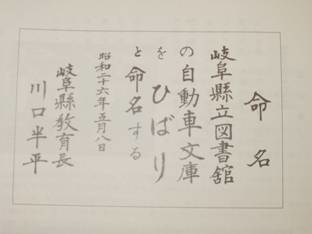 命名
岐阜縣立図書舘
の自動車文庫
をひばり
と命名する
昭和二十六年五月八日
岐阜縣教育長
川口半平